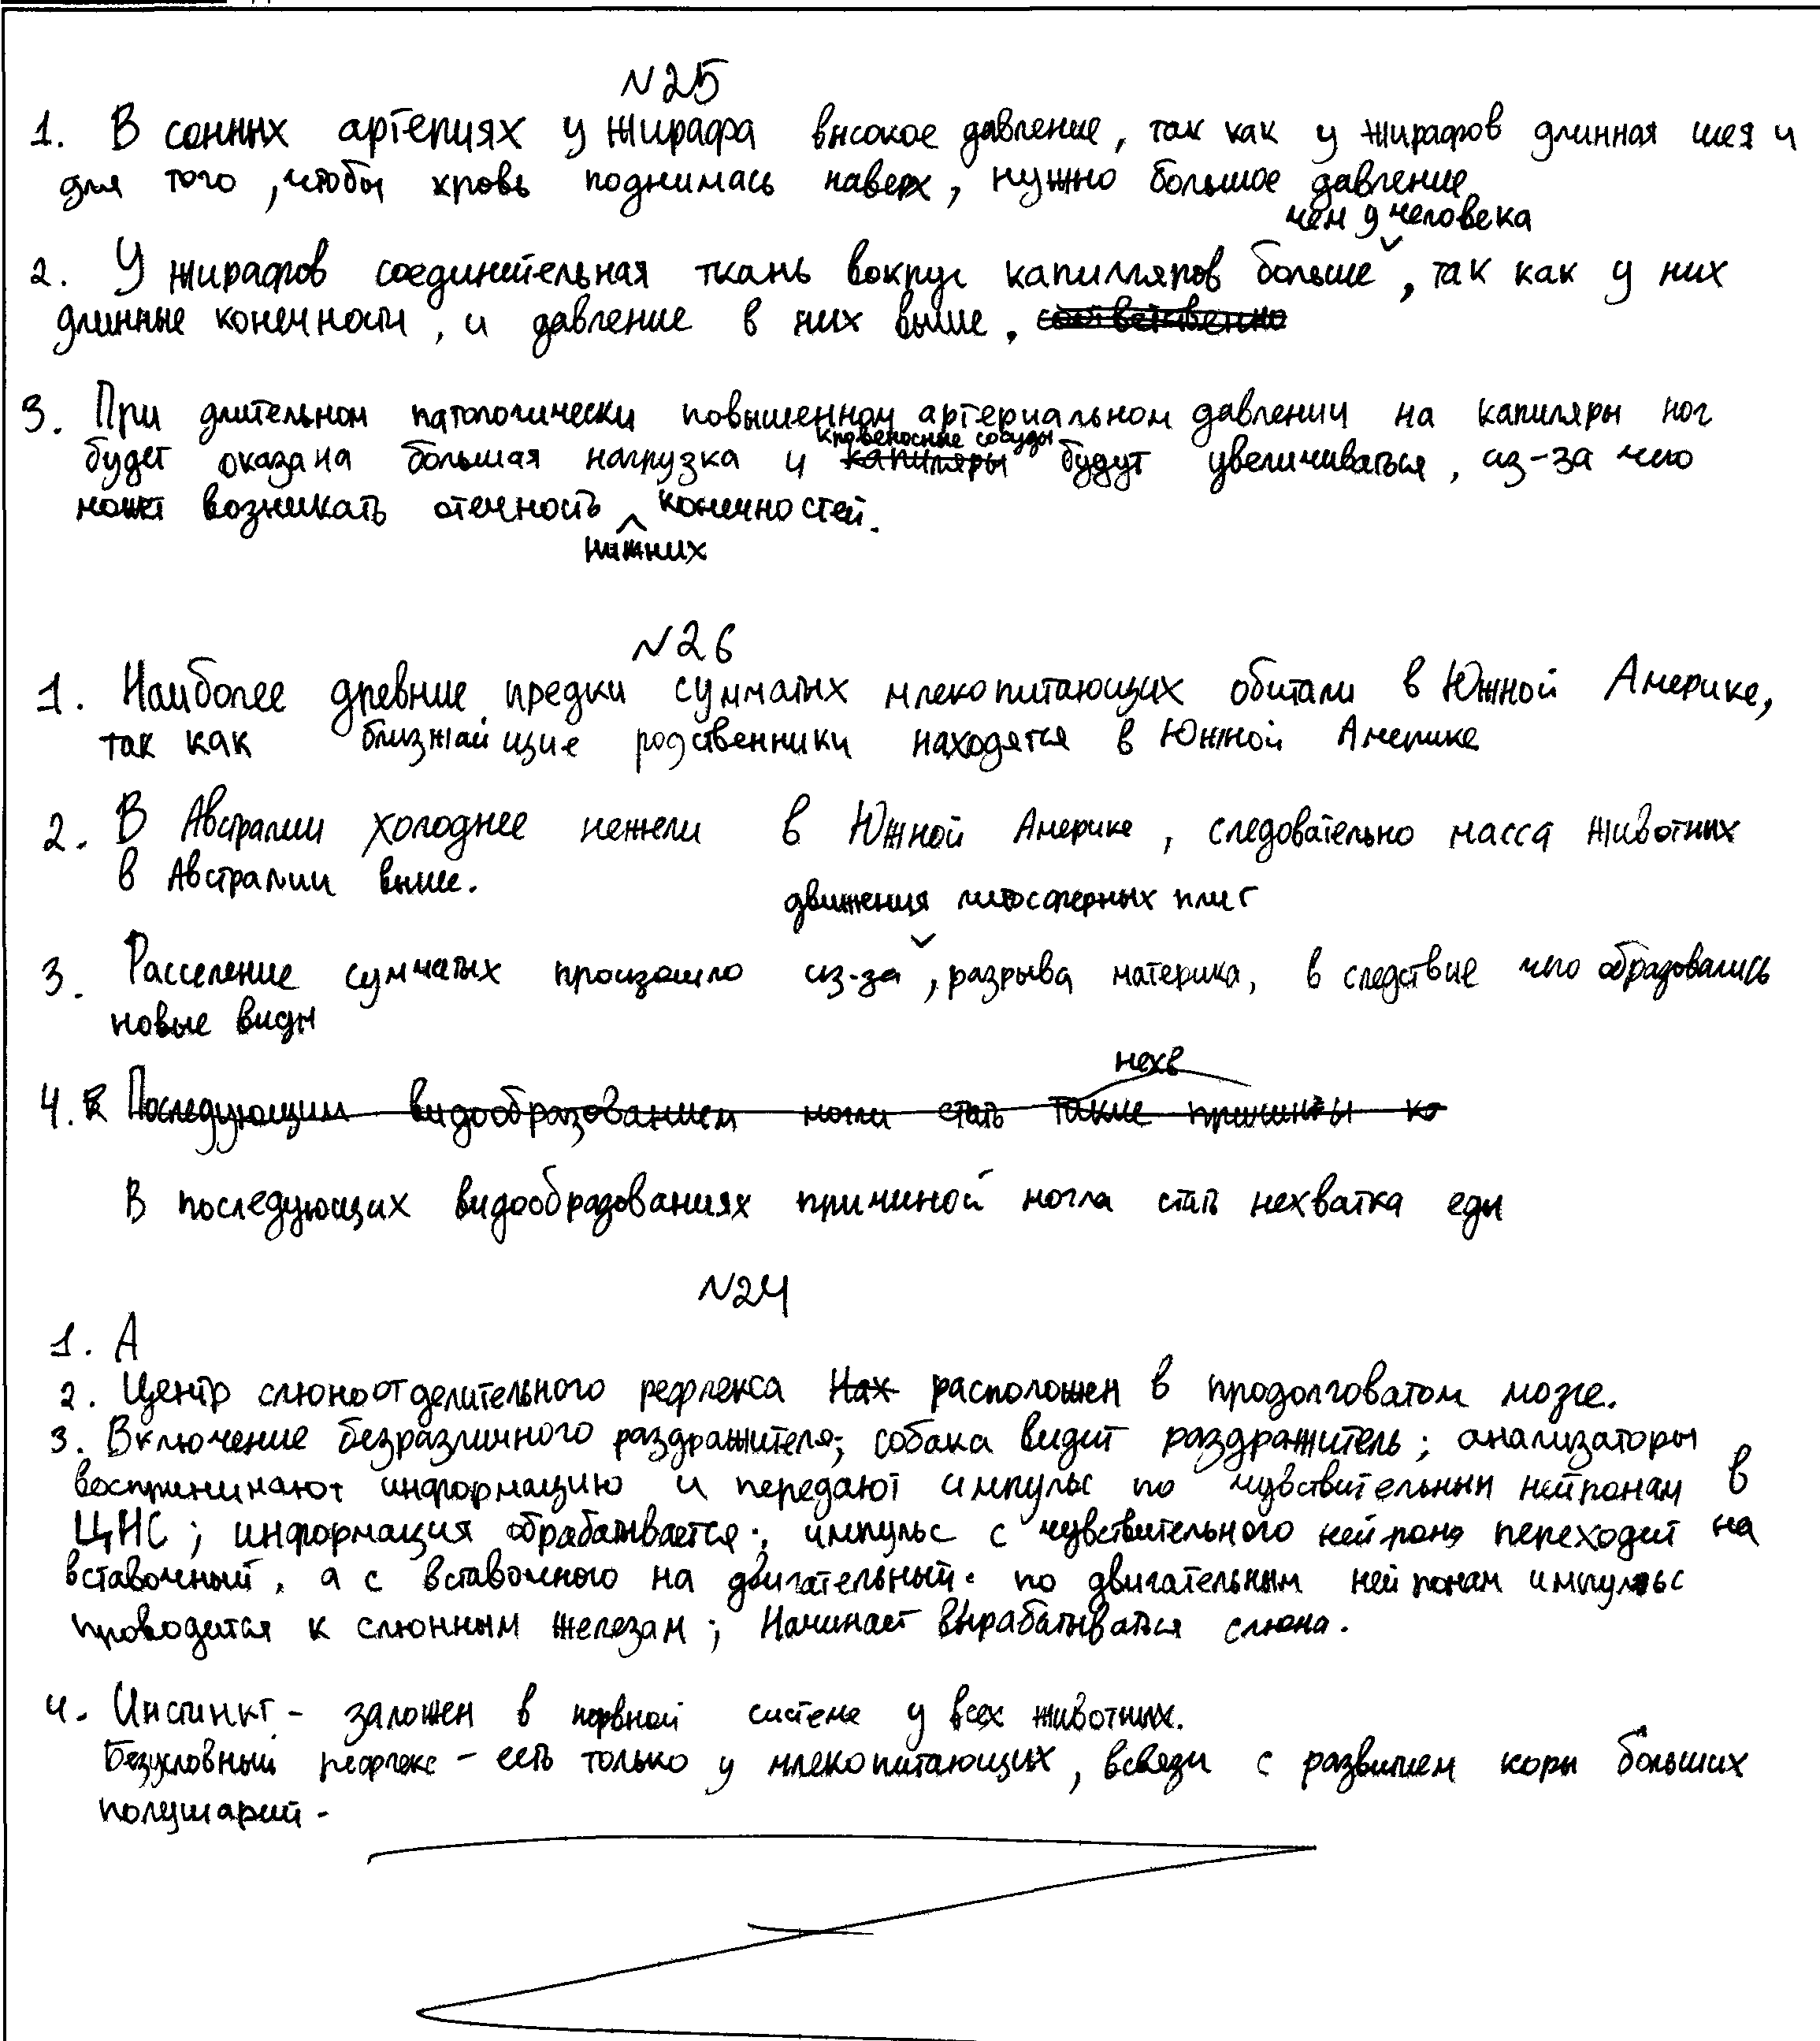 №25
1. В сонных артериях у жирафа высокое давление, так как у жирафов длинная шея и
для того, чтобы кровь поднималась наверх, нужно большое давление
чем у человека
2. У жирафов соединительная ткань вокруг капилляров больше, так как у них
длинные конечности, и давление в них выше. соответственно
3. При длительном патологически повышенном артериальном давлении на капиляры ног
кровеносные сосуды
будет оказана большая нагрузка и капилляры будут увеличиваться, из-за чего
может возникать отечность конечностей.
нижних
№26
1. Наиболее древние предки сумчатых млекопитающих обитали в Южной Америке,
так как ближайщие родственники находятся в Южной Америке
2. В Австралии холоднее нежели в Южной Америке, следовательно масса животных
в Австралии выше.
движения литосферных плит
3. Расселение сумчатых произошло из-за, разрыва материка, в следствие чего образовались
новые виды
нехв
4. В Последующим видообразованием могли стать такие причины ко
В последующих видообразованиях причиной могла стать нехватка еды
№24
1. А
2. Центр слюноотделительного рефлекса Нах расположен в продолговатом мозге.
3. Включение безразличного раздражителя; собака видит раздражитель; анализаторы
воспринимают информацию и передают импульс по чувствительным нейронам в
ЦНС; информация обрабатывается; импульс с чувствительного нейрона переходит на
вставочный, а с вставочного на двигательный; по двигательным нейронам импульс
проводится к слюнным железам; Начинает вырабатываться слюна.
4. Инстинкт - заложен в нервной системе у всех животных.
Безусловный рефлекс - есть только у млекопитающих, всвязи с развитием коры больших
полушарий -